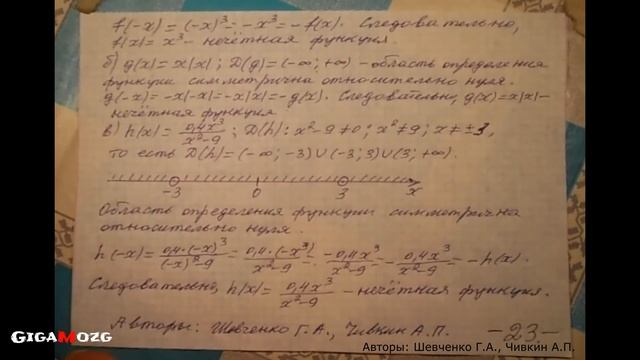 f(-x) = (-x)³ = -x³ = -f(x). Следовательно,
f(x) = x³ - нечётная функция.
б) g(x) = x|x|; D(g) = (-∞; +∞) - область определения
функции симметрична относительно нуля.
g(-x) = -x|-x| = -x|x| = -g(x). Следовательно, g(x) = x|x| -
нечётная функция
в) h(x) = 0,4x³/(x²-9); D(h): x²-9≠0; x²≠9; x≠±3,
то есть D(h) = (-∞; -3)∪(-3; 3)∪(3; +∞).
-3 0 3 x
Область определения функции симметрична
относительно нуля.
h(-x) = 0,4·(-x)³/((-x)²-9) = 0,4·(-x³)/(x²-9) = -0,4x³/(x²-9) = -0,4x³/(x²-9) = -h(x).
Следовательно, h(x) = 0,4x³/(x²-9) - нечётная функция.
Авторы: Шевченко Г.А., Чивкин А.П. -23-
GIGAMOZG
Авторы: Шевченко Г.А., Чивкин А.П.